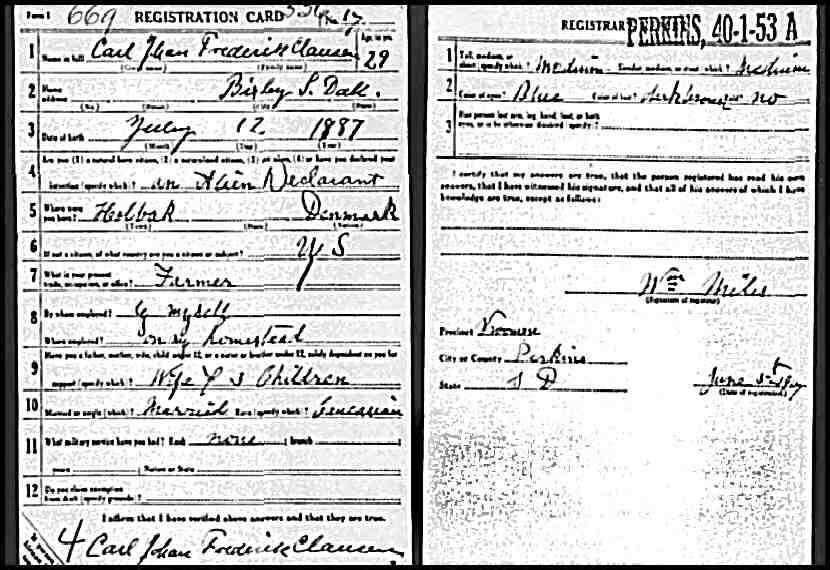 Form 1 669 REGISTRATION CARD No. 17
1 Name in full Carl Johan Frederik Clausen Age, in yrs. 29
(Given name) (Family name)
2 Home address Bixby S. Dak.
(No.) (Street) (City) (State)
3 Date of birth July 12 1887
(Month) (Day) (Year)
Are you (1) a natural born citizen, (2) a naturalized citizen, (3) an alien, (4) or have you declared your
4 intention (specify which)? an Alien Declarant
5 Where were you born? Holbak Denmark
(Town) (State) (Nation)
6 If not a citizen, of what country are you a citizen or subject? U S
7 What is your present trade, occupation, or office? Farmer
8 By whom employed? by myself
Where employed? on my homestead
Have you a father, mother, wife, child under 12, or a sister or brother under 12, solely dependent on you for
9 support (specify which)? Wife & 3 Children
10 Married or single (which)? Married Race (specify which)? Caucasian
11 What military service have you had? Rank none ; branch
years ; Nation or State
12 Do you claim exemption from draft (specify grounds)?
I affirm that I have verified above answers and that they are true.
4 Carl Johan Frederik Clausen
REGISTRAR PERKINS, 40-1-53 A
1 Tall, medium, or short (specify which)? Medium Slender, medium, or stout (which)? Medium
2 Color of eyes? Blue Color of hair? dark brown Bald? no
3 Has person lost arm, leg, hand, foot, or both eyes, or is he otherwise disabled (specify)?
I certify that my answers are true, that the person registered has read his own
answers, that I have witnessed his signature, and that all of his answers of which I have
knowledge are true, except as follows:
Wm Miles
(Signature of registrar)
Precinct Vrooman
City or County Perkins
State S D June 5th 1917
(Date of registration)